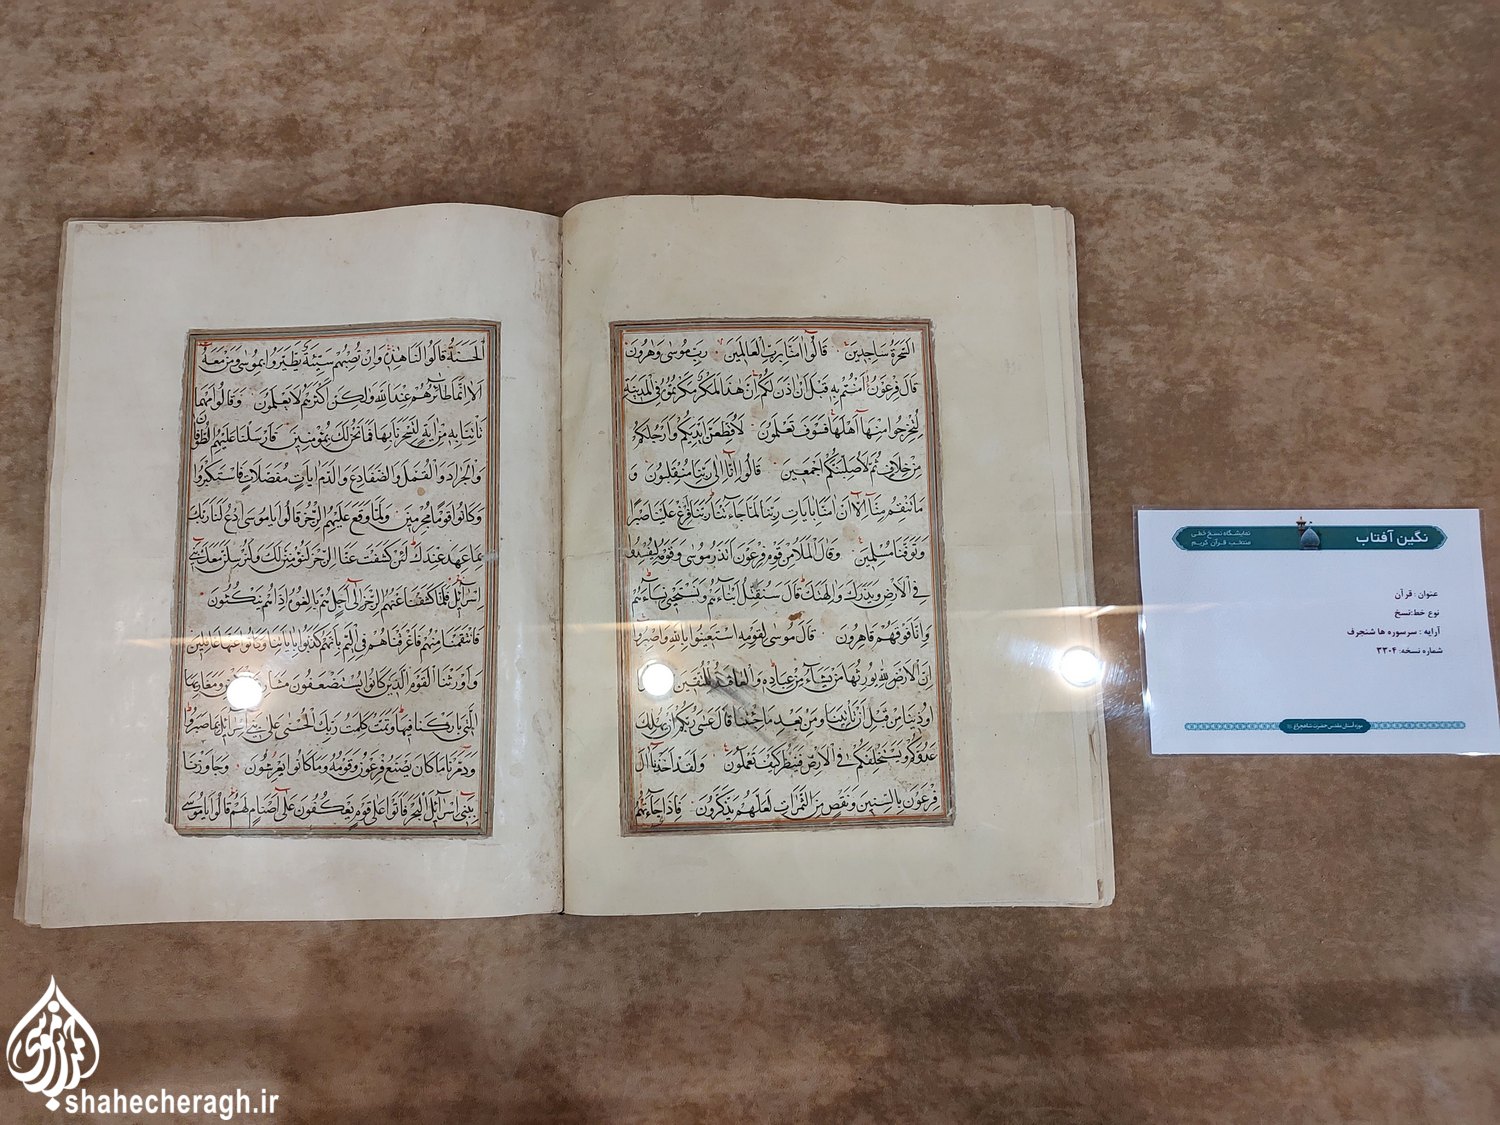 السحرة ساجدين قالوا امنا برب العالمين رب موسى وهرون
قال فرعون امنتم به قبل ان اذن لكم ان هذا لمكر مكرتموه في المدينة
لتخرجوا منها اهلها فسوف تعلمون لاقطعن ايديكم وارجلكم
من خلاف ثم لاصلبنكم اجمعين قالوا انا الى ربنا منقلبون و
ما تنقم منا الا ان امنا بايات ربنا لما جاءتنا ربنا افرغ علينا صبرا
وتوفنا مسلمين وقال الملا من قوم فرعون اتذر موسى وقومه ليفسدوا
في الارض ويذرك والهتك قال سنقتل ابناءهم ونستحيي نساءهم
وانا فوقهم قاهرون قال موسى لقومه استعينوا بالله واصبروا
ان الارض لله يورثها من يشاء من عباده والعاقبة للمتقين
اوذينا من قبل ان تاتينا ومن بعد ما جئتنا قال عسى ربكم ان يهلك
عدوكم ويستخلفكم في الارض فينظر كيف تعملون ولقد اخذنا ال
فرعون بالسنين ونقص من الثمرات لعلهم يذكرون فاذا جاءتهم
الحسنة قالوا لنا هذه وان تصبهم سيئة يطيروا بموسى ومن معه
الا انما طائرهم عند الله ولكن اكثرهم لا يعلمون وقالوا مهما
تاتنا به من اية لتسحرنا بها فما نحن لك بمؤمنين فارسلنا عليهم الطوفان
والجراد والقمل والضفادع والدم ايات مفصلات فاستكبروا
وكانوا قوما مجرمين ولما وقع عليهم الرجز قالوا ياموسى ادع لنا ربك
بما عهد عندك لئن كشفت عنا الرجز لنؤمنن لك ولنرسلن معك بني
اسرائيل فلما كشفنا عنهم الرجز الى اجل هم بالغوه اذا هم ينكثون
فانتقمنا منهم فاغرقناهم في اليم بانهم كذبوا باياتنا وكانوا عنها غافلين
واورثنا القوم الذين كانوا يستضعفون مشارق الارض ومغاربها
التي باركنا فيها وتمت كلمت ربك الحسنى على بني اسرائيل بما صبروا
ودمرنا ما كان يصنع فرعون وقومه وما كانوا يعرشون وجاوزنا
ببني اسرائيل البحر فاتوا على قوم يعكفون على اصنام لهم قالوا ياموسى
نگین آفتاب
نمایشگاه نسخ خطی
منتخب قرآن کریم
عنوان : قرآن
نوع خط:نسخ
آرایه : سرسوره ها شنجرف
شماره نسخه: ۳۳۰۴
موزه آستان مقدس حضرت شاهچراغ
shahecheragh.ir